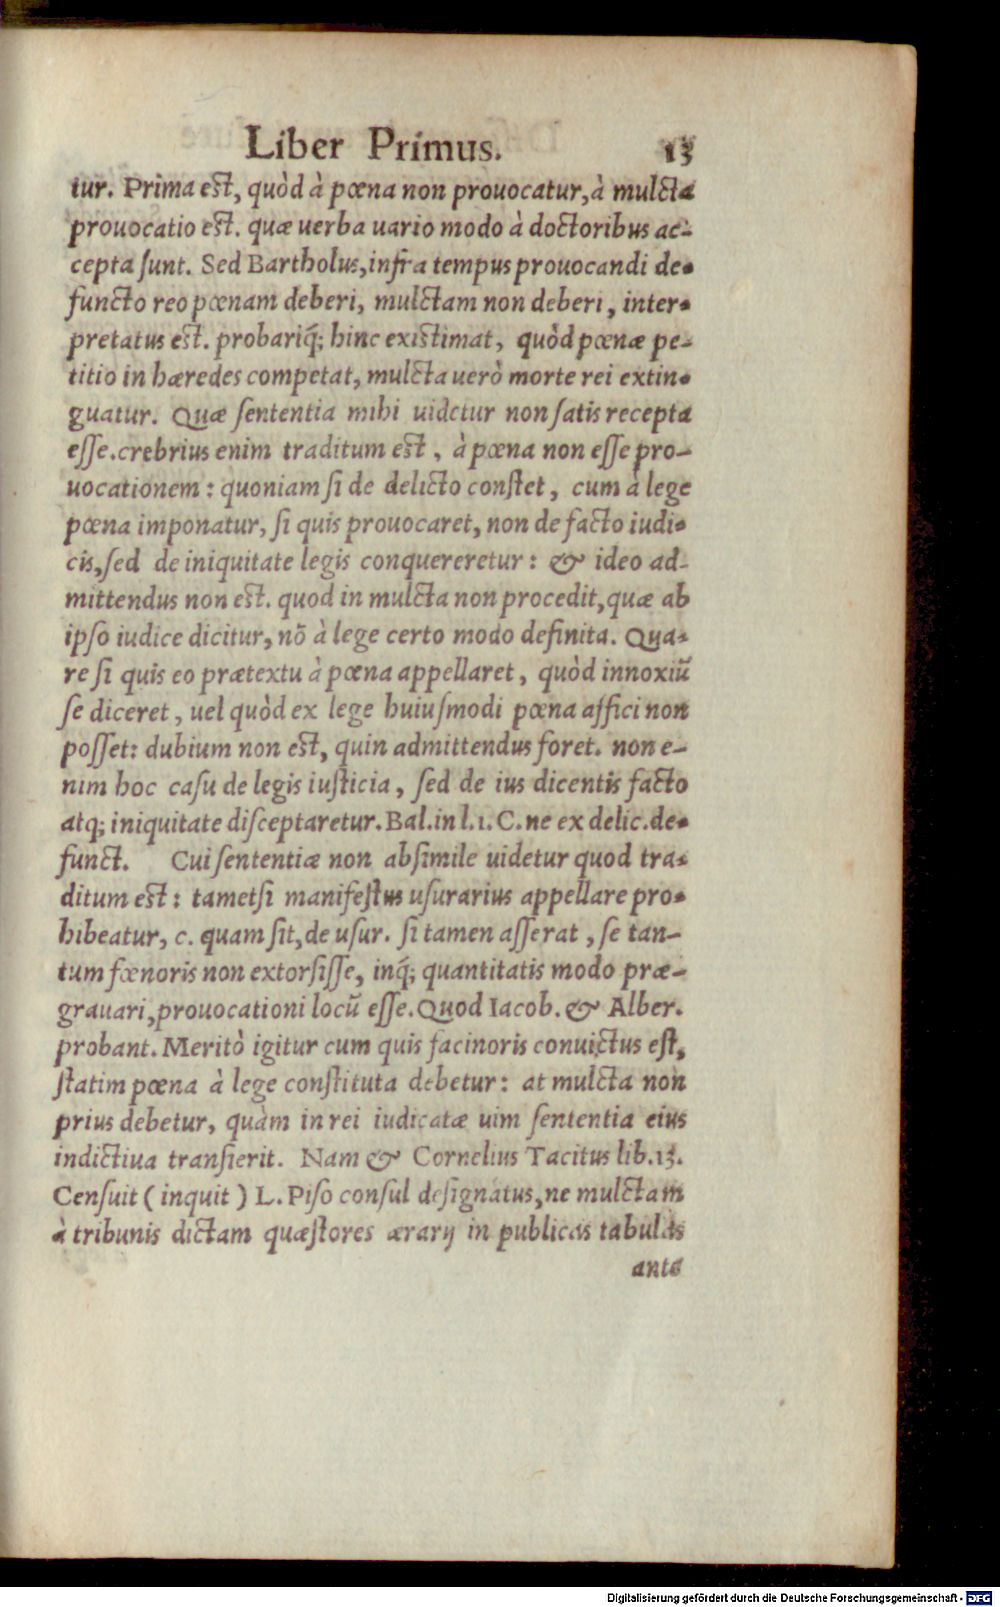 Liber Primus. 13
tur. Prima est, quòd à pœna non prouocatur, à mulcta
prouocatio est. quæ uerba uario modo à doctoribus ac-
cepta sunt. Sed Bartholus, infra tempus prouocandi de-
functo reo pœnam deberi, mulctam non deberi, inter-
pretatus est. probariq́; hinc existimat, quòd pœnæ pe-
titio in hæredes competat, mulcta uerò morte rei extin-
guatur. Quæ sententia mihi uidetur non satis recepta
esse. crebrius enim traditum est, à pœna non esse pro-
uocationem: quoniam si de delicto constet, cum à lege
pœna imponatur, si quis prouocaret, non de facto iudi-
cis, sed de iniquitate legis conquereretur: & ideo ad-
mittendus non est. quod in mulcta non procedit, quæ ab
ipso iudice dicitur, nō à lege certo modo definita. Qua-
re si quis eo prætextu à pœna appellaret, quòd innoxiū
se diceret, uel quòd ex lege huiusmodi pœna affici non
posset: dubium non est, quin admittendus foret. non e-
nim hoc casu de legis iusticia, sed de ius dicentis facto
atq; iniquitate disceptaretur. Bal. in l. 1. C. ne ex delic. de-
funct. Cui sententiæ non absimile uidetur quod tra-
ditum est: tametsi manifestus usurarius appellare pro-
hibeatur, c. quam sit, de usur. si tamen asserat, se tan-
tum fœnoris non extorsisse, inq́; quantitatis modo præ-
grauari, prouocationi locū esse. Quod Iacob. & Alber.
probant. Meritò igitur cum quis facinoris conuictus est,
statim pœna à lege constituta debetur: at mulcta non
prius debetur, quàm in rei iudicatæ uim sententia eius
indictiua transierit. Nam & Cornelius Tacitus lib. 13.
Censuit (inquit) L. Piso consul designatus, ne mulctam
à tribunis dictam quæstores ærarij in publicas tabulas
ante
Digitalisierung gefördert durch die Deutsche Forschungsgemeinschaft - DFG